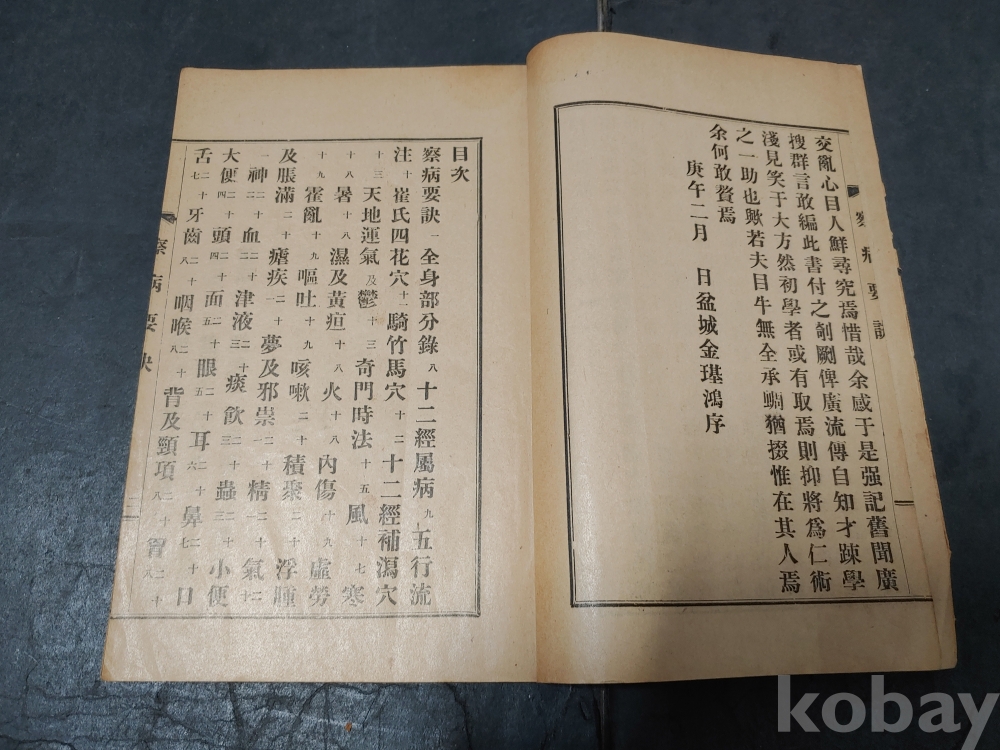 交亂心目人鮮尋究焉惜哉余感于是强記舊聞廣
搜群言敢編此書付之剞劂俾廣流傳自知才踈學
淺見笑于大方然初學者或有取焉則抑將爲仁術
之一助也歟若夫目牛無全承蜩猶掇惟在其人焉
余何敢贅焉
庚午二月 日盆城金璂鴻序
察病要訣
目次
察病要訣一 全身部分錄八 十二經屬病九 五行流
注十 崔氏四花穴十二 騎竹馬穴十二 十二經補瀉穴
十三 天地運氣及鬱十三 奇門時法十五 風十七 寒
十八 暑十八 濕及黃疸十八 火十八 內傷十九 虛勞
十九 霍亂十九 嘔吐十九 咳嗽二十 積聚二十 浮腫
及脹滿二十 瘧疾二十一 夢及邪祟二十一 精二十一 氣二十
一 神二十二 血二十二 津液二十三 痰飮二十三 蟲二十三 小便
大便二十四 頭二十四 面二十五 眼二十五 耳二十六 鼻二十七 口
舌二十七 牙齒二十八 咽喉二十八 背及頸項二十八 胷二十八
察病要訣
kobay